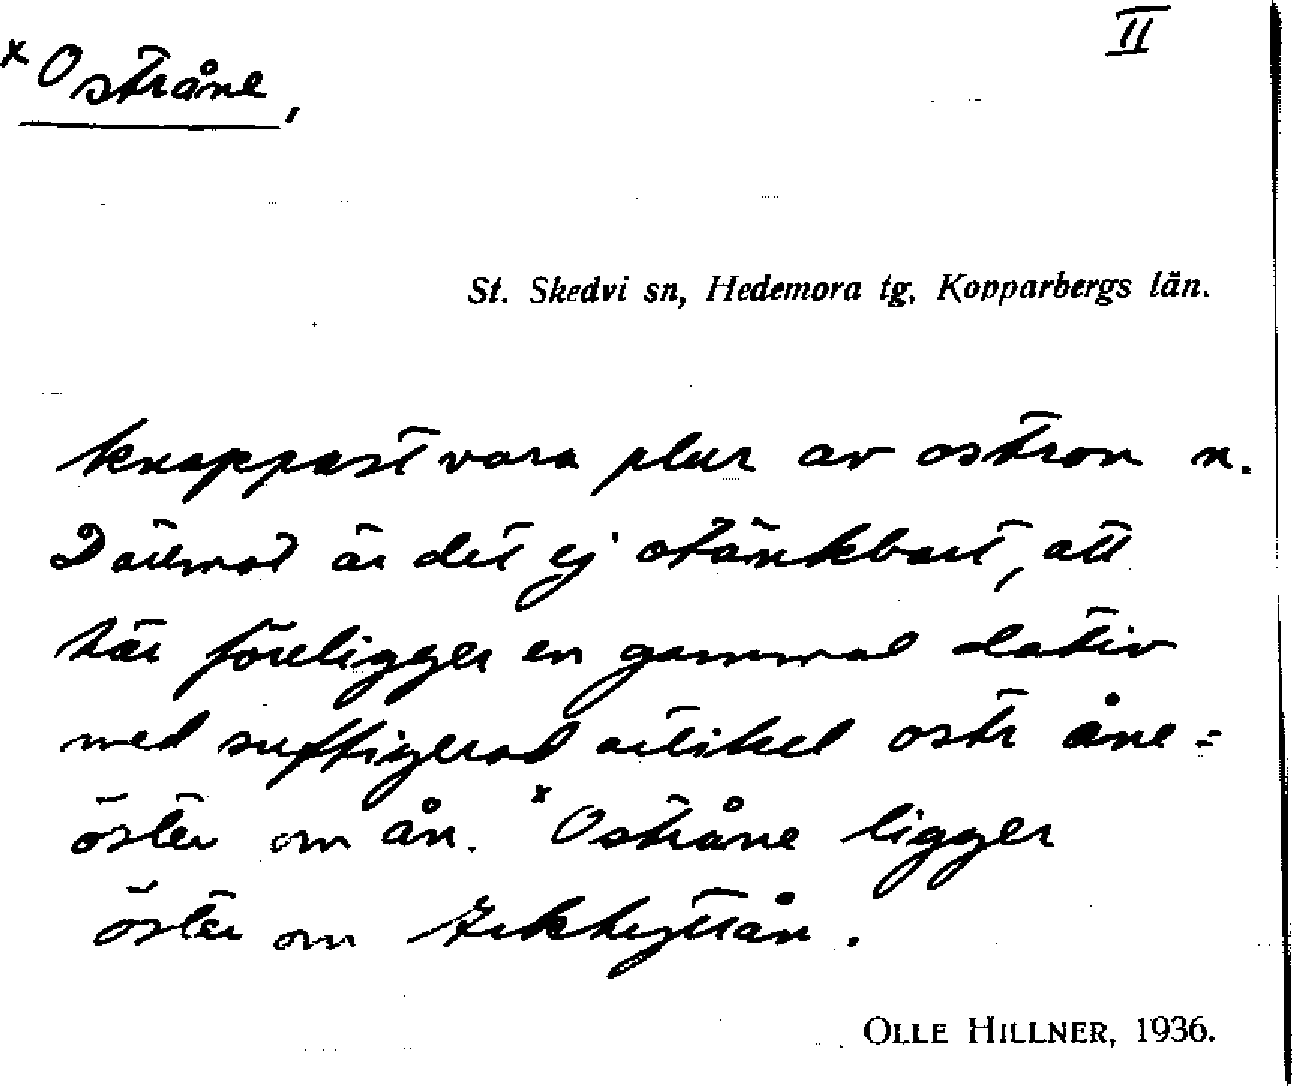 II
ˣOstråne,
St. Skedvi sn, Hedemora tg, Kopparbergs län.
knappast vara plur av ostron n.
Däremot är det ej otänkbart, att
här föreligger en gammal dativ
med suffigerad artikel ostr åne =
öster om ån. ˣOstråne ligger
öster om .
OLLE HILLNER, 1936.